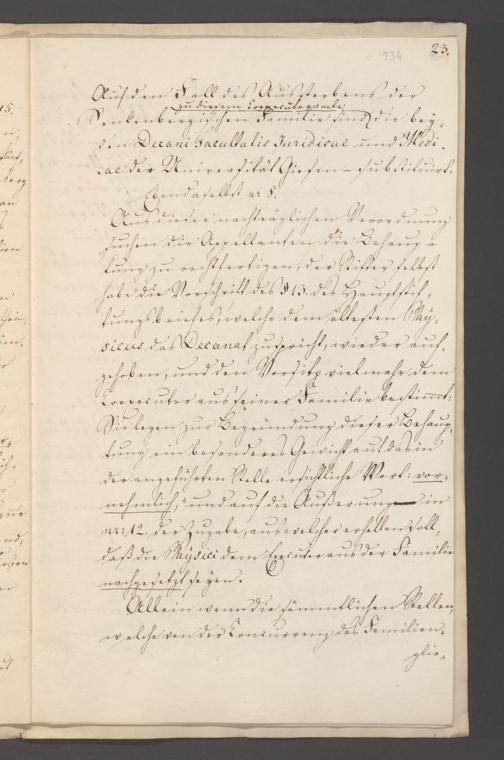 134
23.
Auf den Fall des Aussterbens der
zu diesem Coexecutorenamte
Senkenbergischen Familie sind die bey
den Decani Facultatis Juridicae und Medi-
cae der Universität Giesen - substituirt.
Ebendaselbst nr 8.
Aus dieser nachträglichen Verordnung
suchen die Appellanten die Behaup-
tung zu rechtfertigen, der Stifter selbst
habe die Vorschrift des § 13. des Hauptstif-
tungsbriefes, welche dem ältesten Phy-
sicus das Decanat zuspricht, wieder auf-
gehoben, und den Vorsitz vielmehr dem
Coexecutor aus seiner Familie bestimmt:
Sie legen zur Begründung dieser Behaup-
tung ein besonderes Gewicht auf das in
der angeführten Stelle ersichtliche Wort: vor-
nehmlich," und auf die Äußerung in
nr: 12. der Zugabe, aus welcher erhellen soll,
daß die Physici dem Executor aus der Familie
nachgesetzt seyen.
Allein wenn die sämmtlichen Stellen,
welche von der Concurrenz des Familien-
glie-